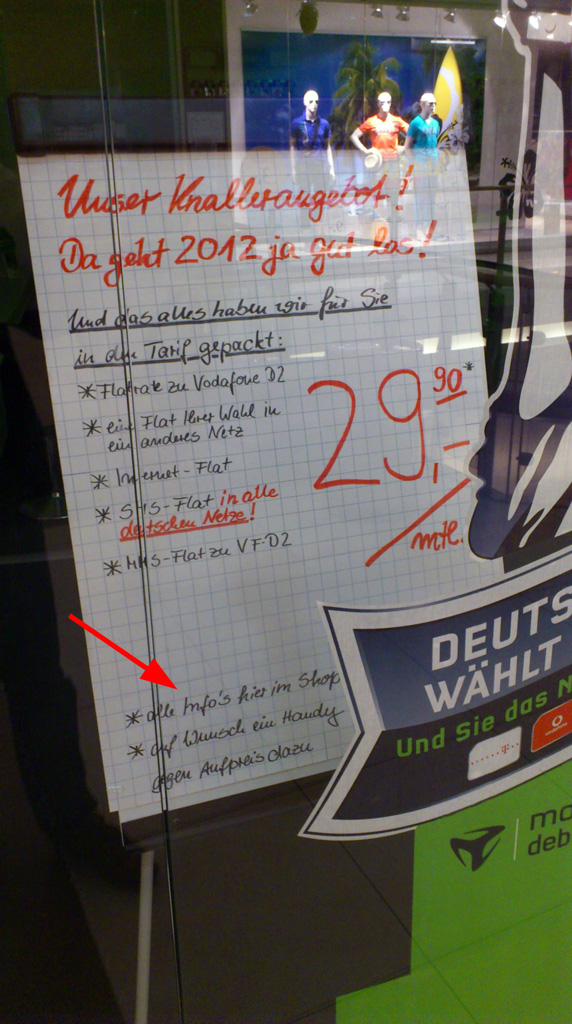 Unser Knallerangebot!
Da geht 2012 ja gut los!
Und das alles haben wir für Sie
in den Tarif gepackt:
* Flatrate zu Vodafone D2
* eine Flat Ihrer Wahl in
ein anderes Netz
* Internet-Flat
* SMS-Flat in alle
deutschen Netze!
* MMS-Flat zu VF-D2
29,-
90*
/mtl.
* alle Info's hier im Shop
* auf Wunsch ein Handy
gegen Aufpreis dazu
DEUTS
WÄHLT
Und Sie das N
mo
deb